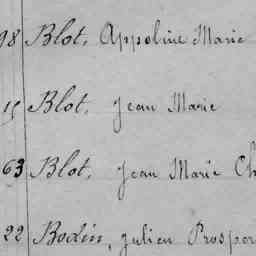 98 Blot, Appoline Marie
15 Blot, Jean Marie
63 Blot, Jean Marie Ch
22 Bodin, Julien Prosper